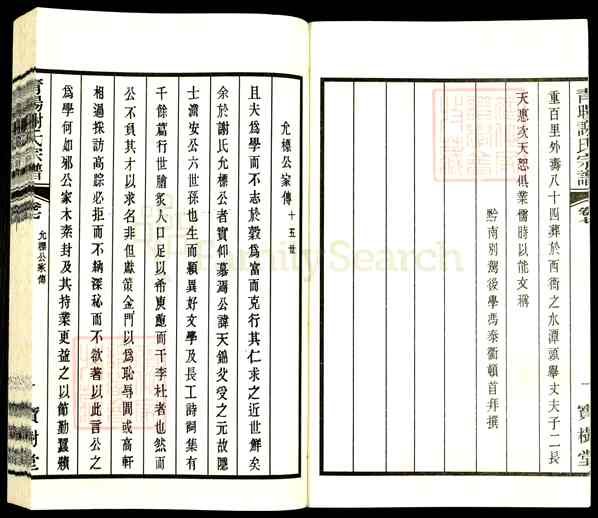 青陽謝氏宗譜 卷七
重百里外壽八十四葬於西衖之水潭頭舉丈夫子二長
天惠次天恕俱業儒時以能文稱
黔南別駕後學馮泰衢頓首拜撰
一 寶樹堂
允標公家傳 十五世
且夫爲學而不志於穀爲富而克行其仁求之近世鮮矣
余於謝氏允標公者實仰慕焉公諱天錦父受之元故隱
士濟安公六世孫也生而穎異好文學及長工詩詞集有
千餘篇行世膾炙人口足以希庾鮑而干李杜者也然而
公不負其才以求名非但獻策金門以爲恥辱間或高軒
相過採訪高踪必拒而不納深秘而不欲著以此言公之
爲學何如邪公家本素封及其持業更益之以節勤蠶
青陽謝氏宗譜 卷七 允標公家傳
一 寶樹堂
FamilySearch